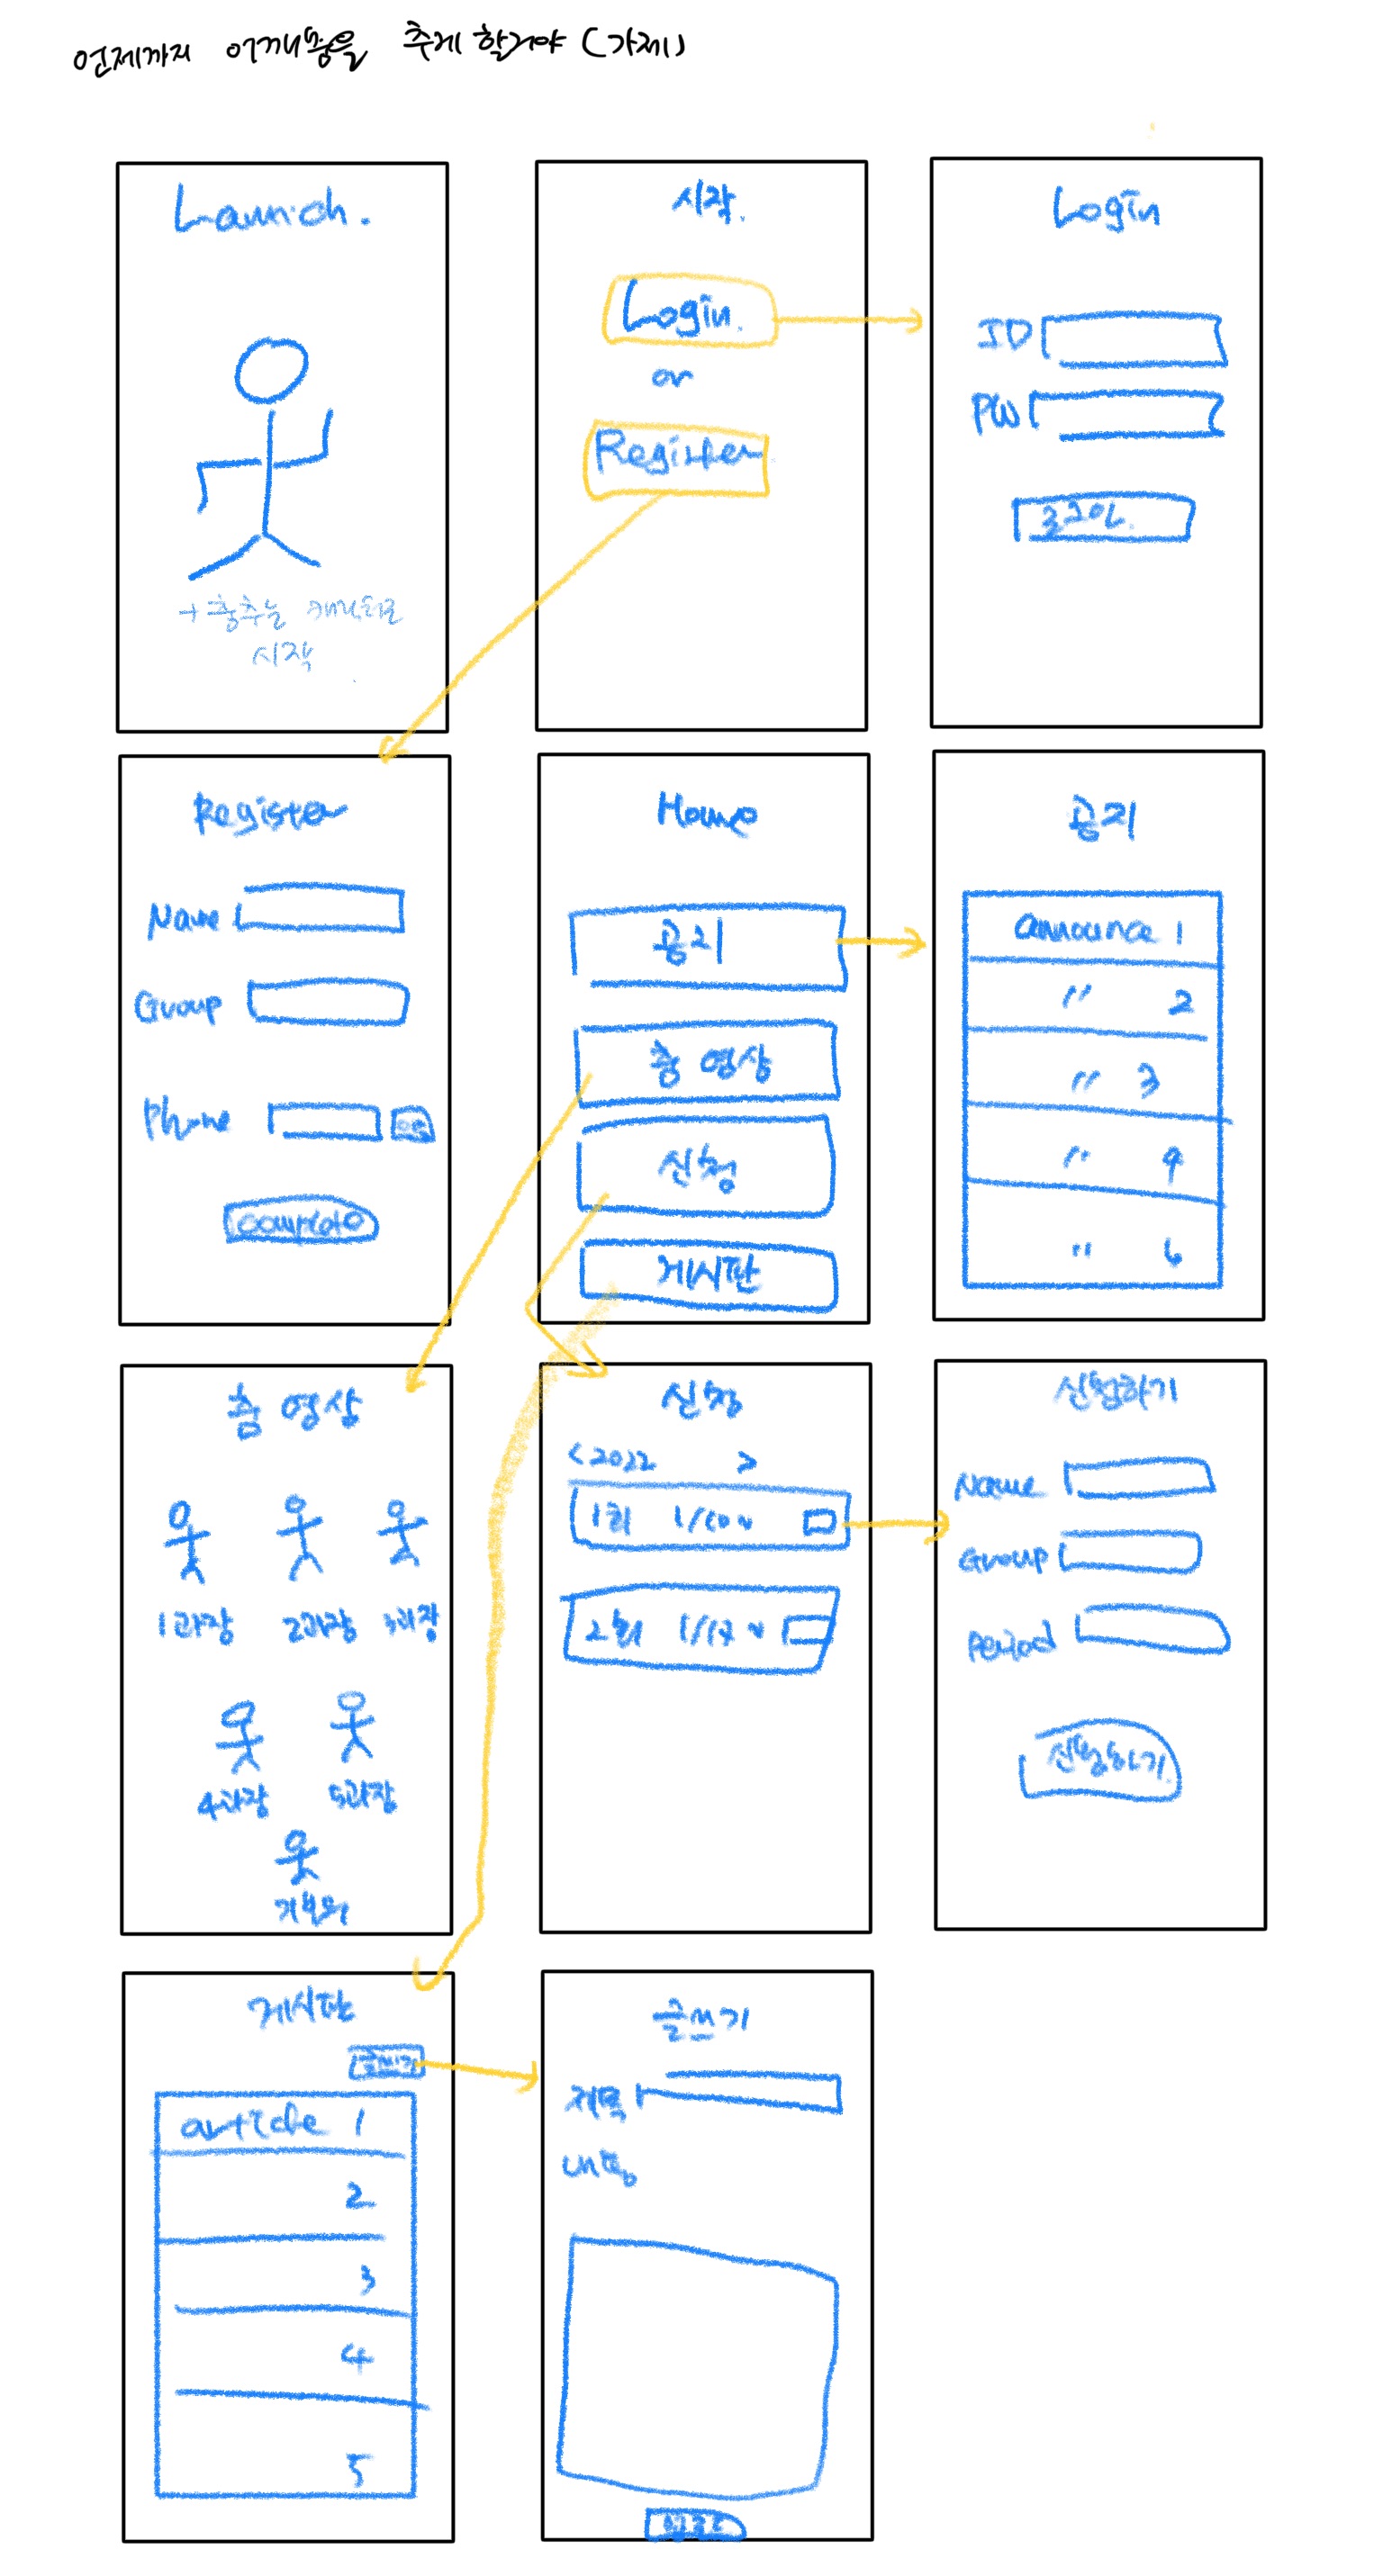 언제까지 어깨춤을 추게 할거야 (가제)
Launch.
+ 춤추는 캐릭터로
시작
시작.
Login.
or
Register
Login
ID
PW
로그인.
Register
Name
Group
Phone
complete
Home
공지
춤 영상
신청
게시판
공지
announce 1
〃 2
〃 3
〃 4
〃 6
춤 영상
1과장 2과장 3과장
4과장 5과장
신청
< 2022 >
1회 1/10~
2회 1/17~
신청하기
Name
Group
Period
신청하기
게시판
글쓰기
article 1
2
3
4
5
글쓰기
제목
내용
업로드